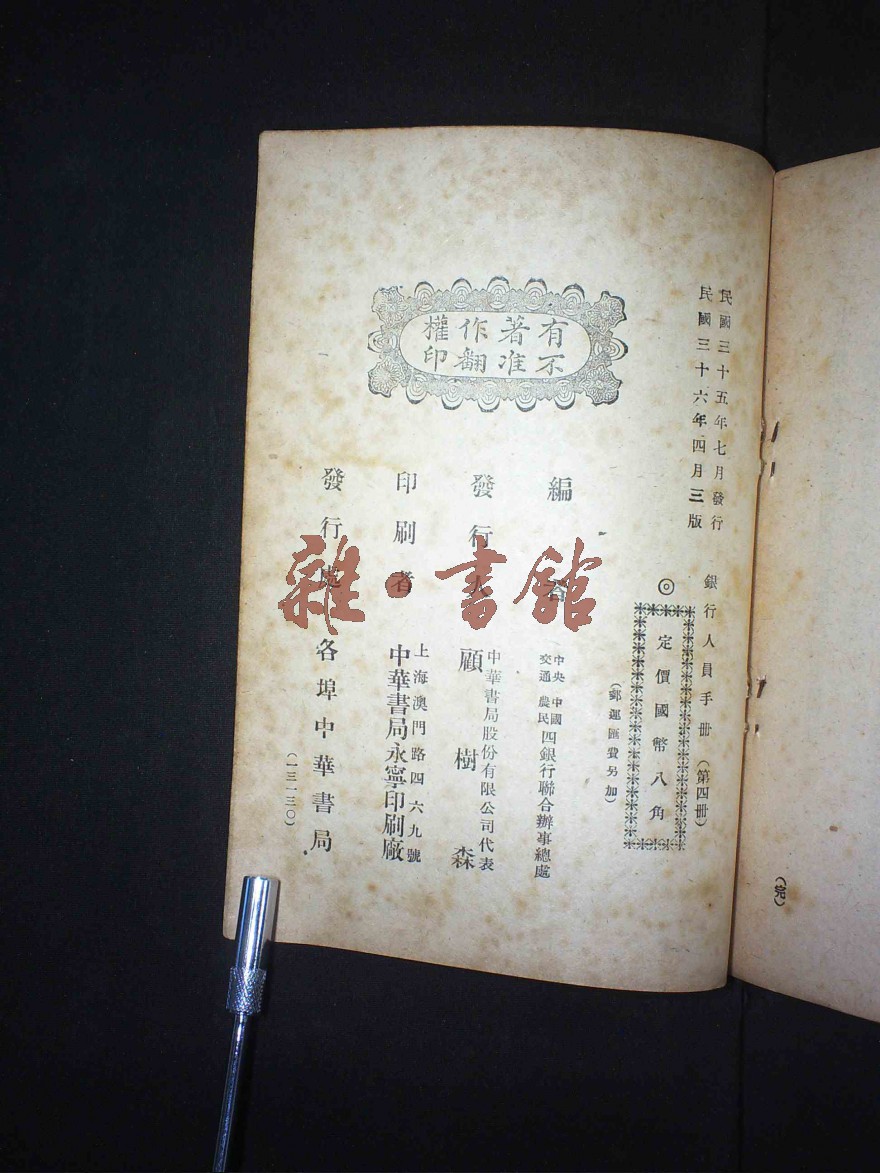 民國三十五年七月發行
民國三十六年四月三版
銀行人員手冊(第四冊)
◎定價國幣八角
(郵運匯費另加)
有著作權
不准翻印
編者
中央 中國
交通 農民
四銀行聯合辦事總處
發行人
中華書局股份有限公司代表
顧樹森
印刷者
上海澳門路四六九號
中華書局永寧印刷廠
發行處 各埠中華書局
(一三一三〇)
(完)
雜·書館